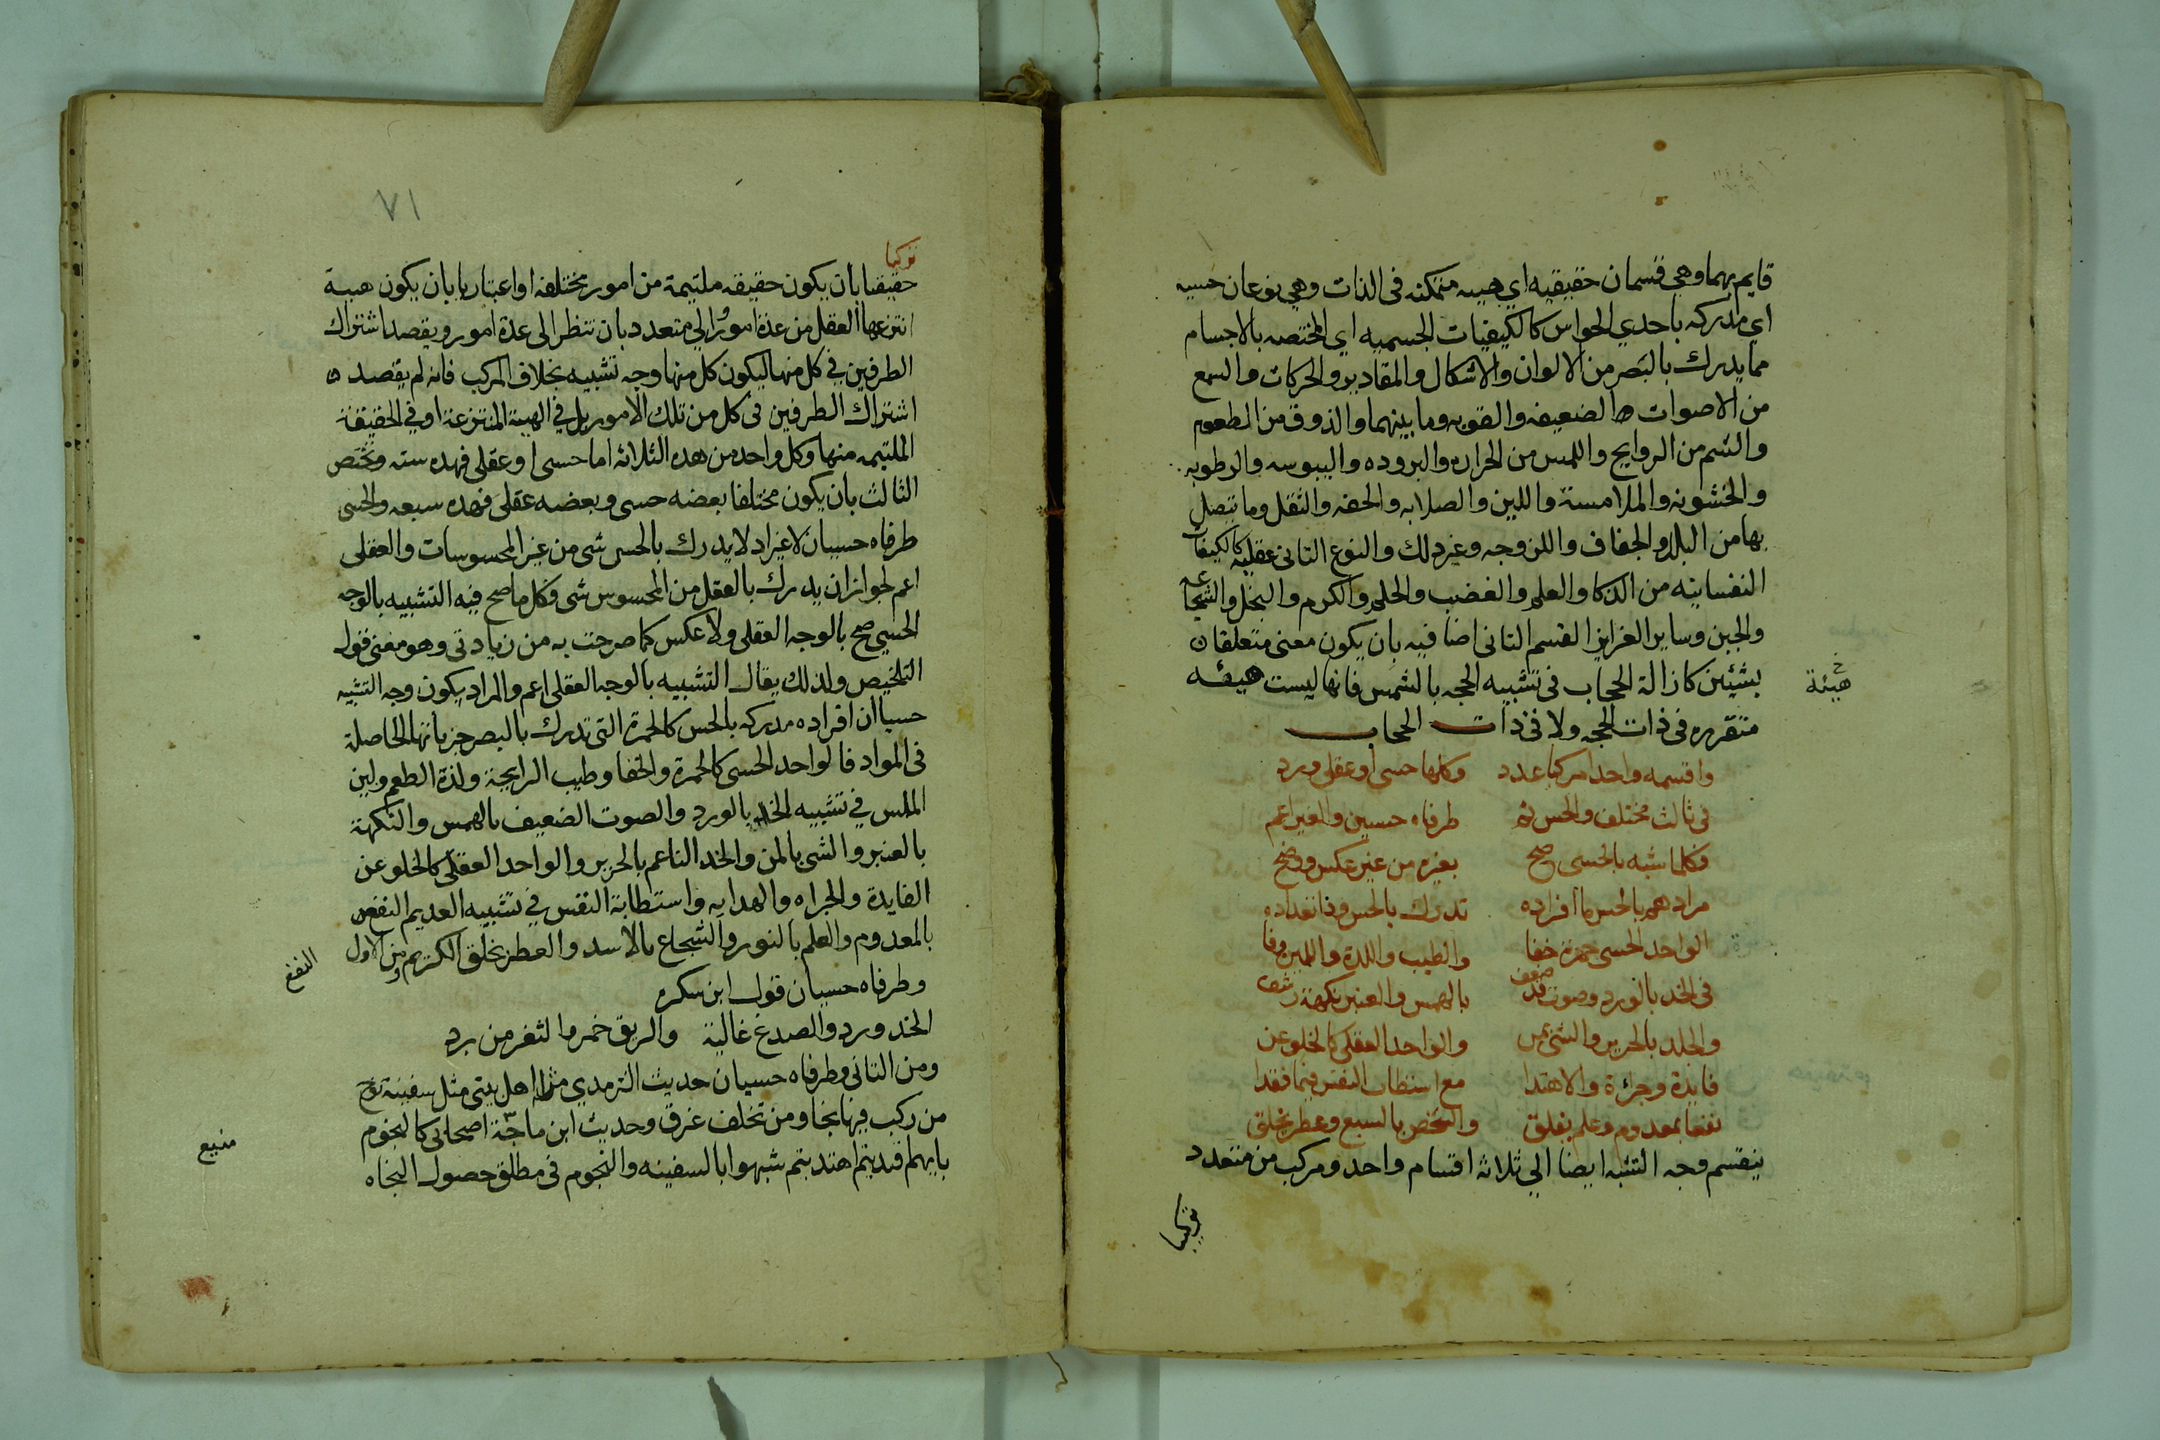 قايم بهما وهي قسمان حقيقيه اي هييه متمكنه في الذات وهي نوعان حسيه
اي مدركه باحدي الحواس كالكيفيات الجسميه اي المختصه بالاجسام
مما يدرك بالبصر من الالوان والاشكال والمقادير والحركات والسمع
من الاصوات الضعيفه والقويه وما بينهما والذوق من المطعوم
والشم من الروايح واللمس من الحراره والبروده واليبوسه والرطوبه
والخشونه والملامسة واللين والصلابه والخفه والثقل وما يتصل
بها من البلل والجفاف واللزوجه وغير ذلك والنوع الثاني عقليه كالكيفيات
النفسانيه من الذكا والعلم والغضب والحلم والكرم والبخل والشجاعه
والجبن وساير الغرايز القسم الثاني اضافيه بان يكون معني متعلقا
بشيئين كازالة الحجاب في تشبيه الحجه بالشمس فانها ليست هيئه
هيئة
متقرره في ذات الحجه ولا في ذات الحجاب
واقسمه واحدا مركبا عدد وكلها حسي او عقلي ورد
في ثالث مختلف والحس ثم طرفاه حسيين والغير اعم
فكلما شبه بالحسي صح بغيره من غير عكس ووضح
مرادهم بالحس ما افراده تدرك بالحس وذا تعداده
الواحد الحسي حمرة خفا والطيب واللذة واللين وفا
في الخد بالورد وصوت قد ضعف بالهمس والعنبر نكهة رشف
والجلد بالحرير والشي بمن والواحد العقلي كالخلو عن
فايدة وجرئة والاهتدا مع استطاب النفس فيما فقدا
نفعا بمعدوم وعلم بفلق والشخص بالسبع وعطر بخلق
ينقسم وجه التشبه ايضا الي ثلاثة اقسام واحد ومركب من متعدد
تركيبا
٧١
تركيبا
حقيقيا بان يكون حقيقه ملتيمة من امور مختلفه او اعتباريا بان يكون هيية
انتزعها العقل من عدة امور والي متعدد بان تنظر الي عدة امور ويقصد اشتراك
الطرفين في كل منها ليكون كل منها وجه تشبيه بخلاف المركب فانه لم يقصد
اشتراك الطرفين في كل من تلك الامور بل في الهيية المنتزعة او في الحقيقة
الملتيمه منها وكل واحد من هذه الثلاثه اما حسي او عقلي فهذه سته ويختص
الثالث بان يكون مختلفا بعضه حسي وبعضه عقلي فهذه سبعه والحسي
طرفاه حسيان لا غير اذ لا يدرك بالحس شي من غير المحسوسات والعقلي
اعم لجواز ان يدرك بالعقل من المحسوس شي فكل ما صح فيه التشبيه بالوجه
الحسي صح بالوجه العقلي ولا عكس كما صرحت به من زيادتي وهو معني قول
التلخيص ولذلك يقال التشبيه بالوجه العقلي اعم والمراد يكون وجه التشبيه
حسيا ان افراده مدركه بالحس كالحمرة التي تدرك بالبصر جزياتها الحاصلة
في المواد فالواحد الحسي كالحمرة والخفا وطيب الرايحة ولذة الطعم ولين
الملمس في تشبيه الخد بالورد والصوت الضعيف بالهمس والنكهة
بالعنبر والشي بالمن والخد الناعم بالحرير والواحد العقلي كالخلو عن
الفايدة والجراه والهدايه واستطابة النفس في تشبيه العديم النفع
بالمعدوم والعلم بالنور والشجاع بالاسد والعطر بخلق الكريم ومن الاول
النفع
وطرفاه حسيان قول ابن سكره
الخد ورد والصدغ غالية والريق خمر والثغر من برد
ومن الثاني وطرفاه حسيان حديث الترمدي مثل اهل بيتي مثل سفينة نوح
من ركب فيها نجا ومن تخلف غرق وحديث ابن ماجة اصحابي كالنجوم
بايهم اقتديتم اهتديتم شبهوا بالسفينه والنجوم في مطلق حصول النجاه
منيع